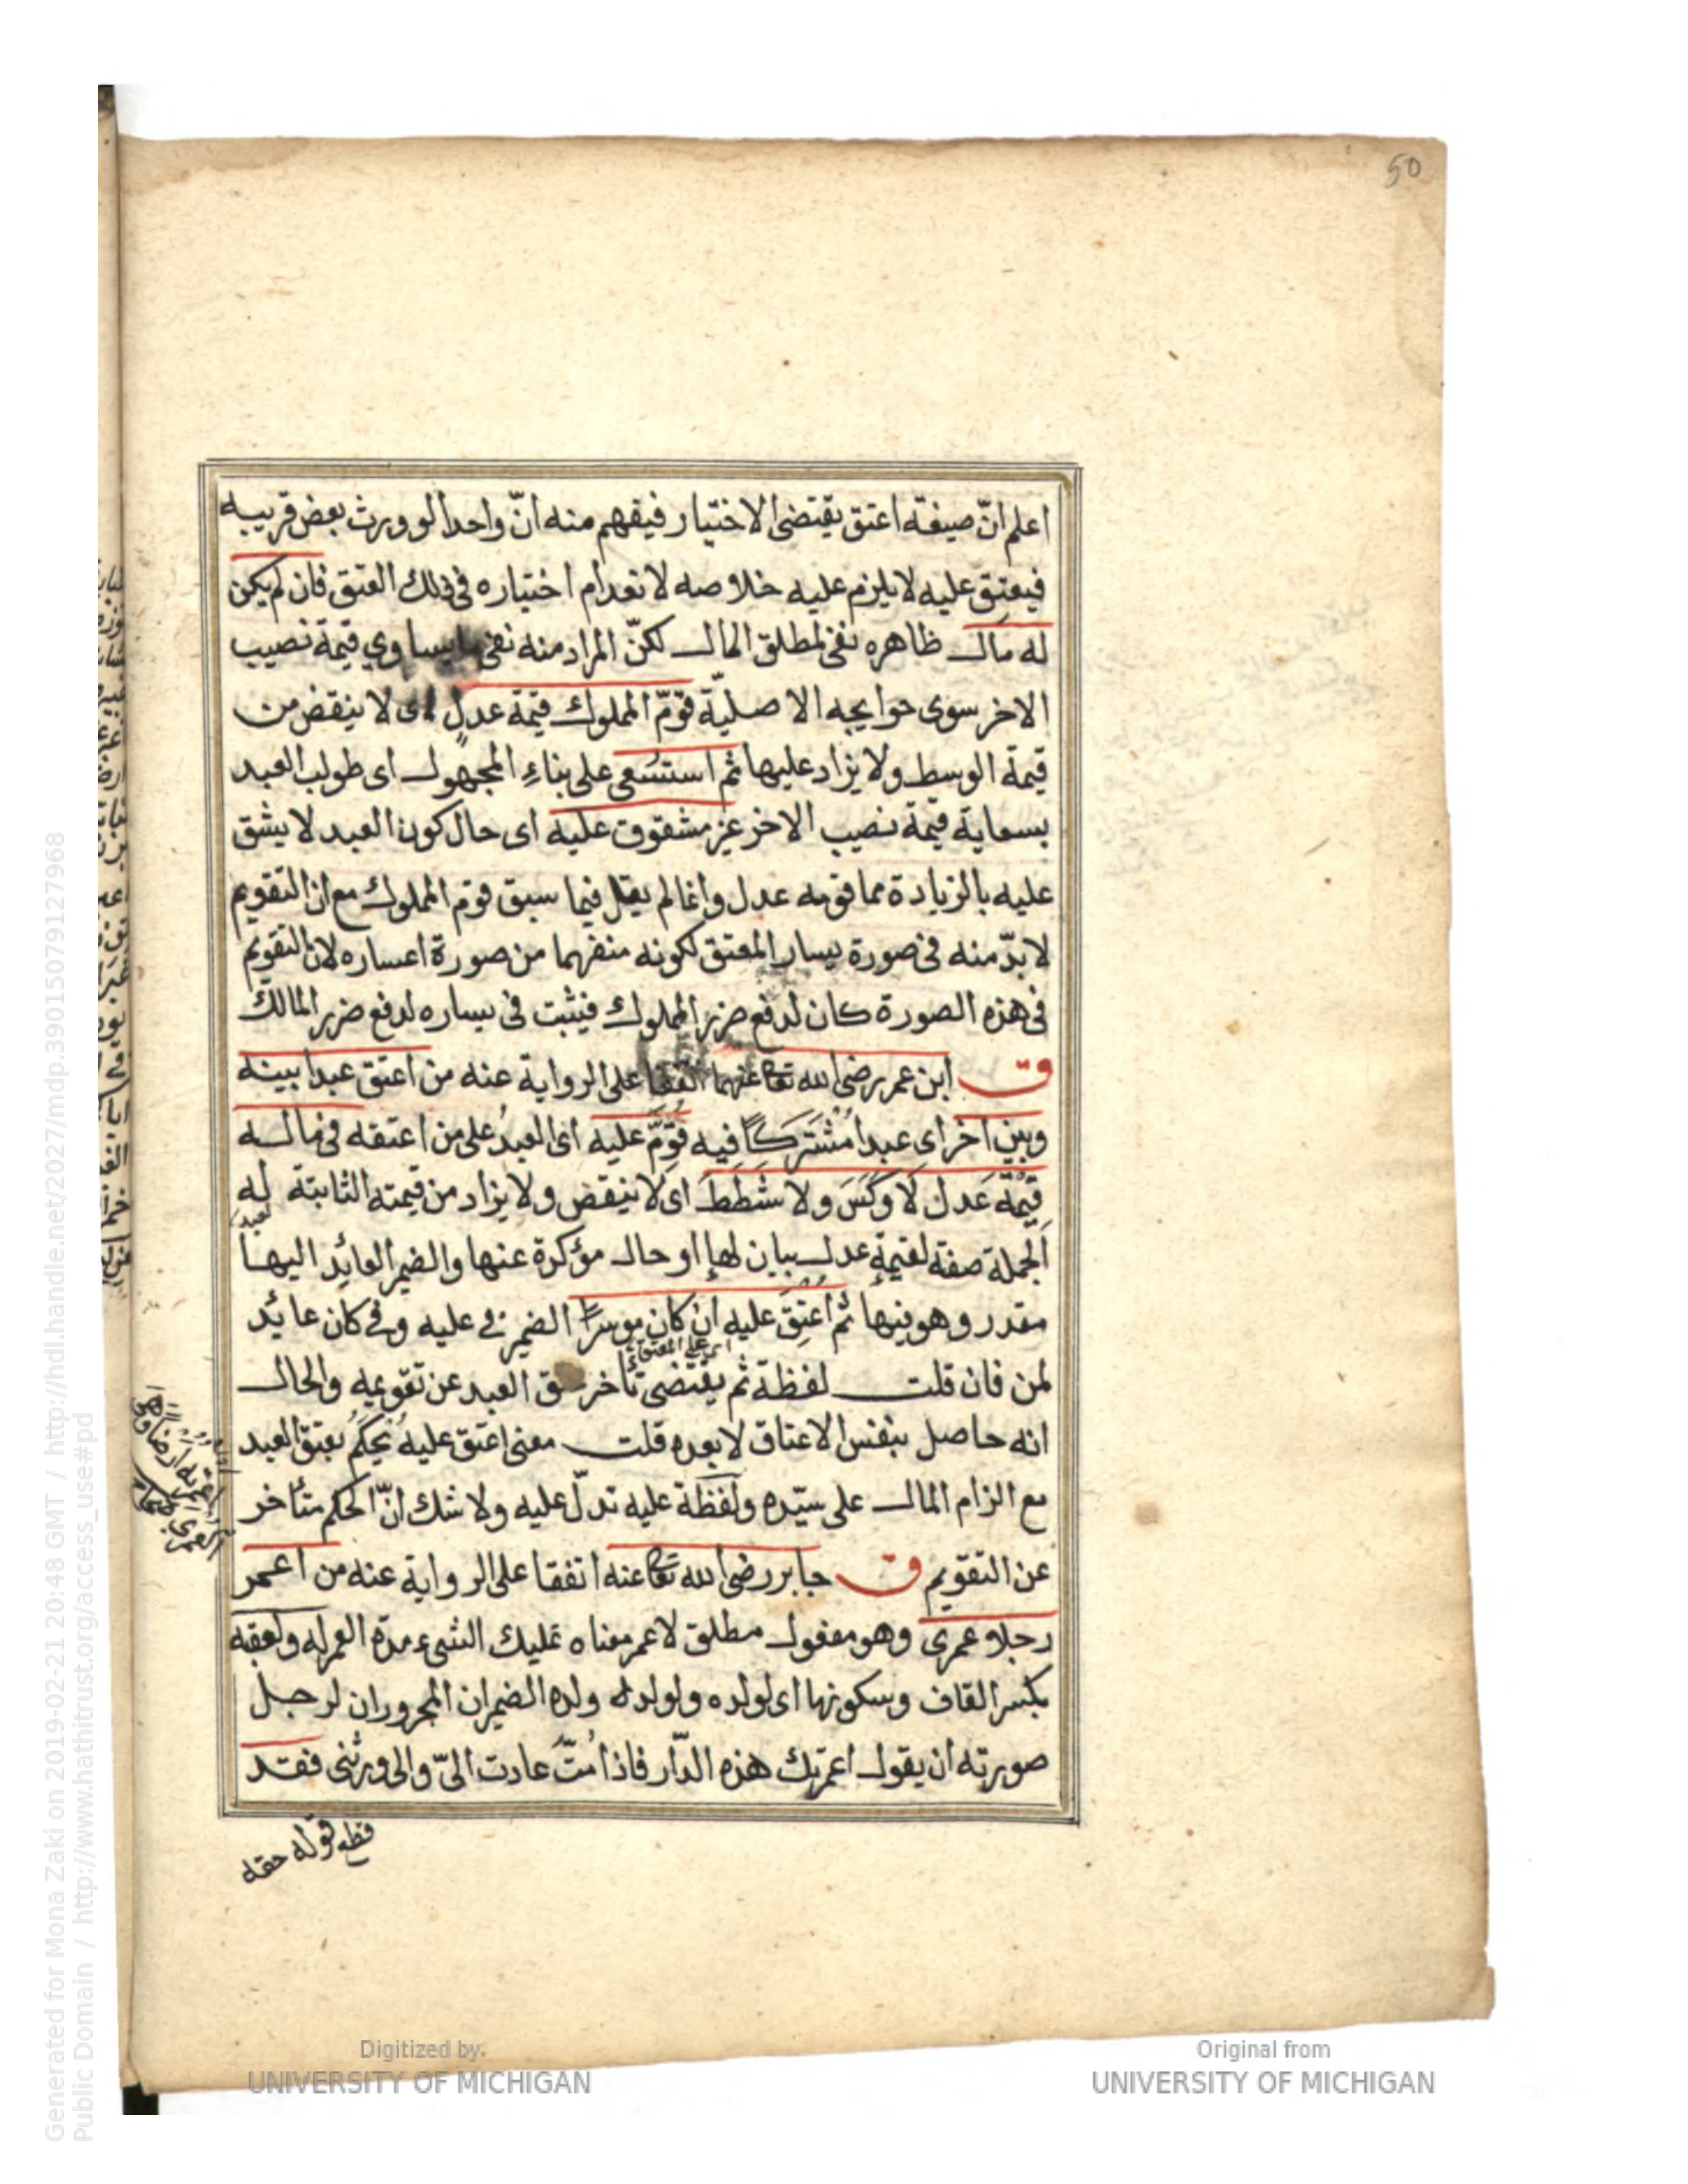 50
اعلم انّ صيغة اعتق يقتضى الاختيار فيفهم منه انّ واحدا لو ورث بعض قريبه
فيعتق عليه لا يلزم عليه خلاصه لانعدام اختياره فى ذلك العتق فان لم يكن
له مال ظاهره نفى لمطلق المال لكنّ المراد منه نفى ما يساوي قيمة نصيب
الاخر سوى حوايجه الاصليّة قوّم المملوك قيمة عدل اى لا ينقض من
قيمة الوسط ولا يزاد عليها ثم استسعى على بناء المجهول اى طولب العبد
بسعاية قيمة نصيب الاخر غير مشقوق عليه اى حال كون العبد لا يشق
عليه بالزيادة مما قومه عدل وانما لم يقل فيما سبق قوم المملوك مع ان التقويم
لا بدّ منه فى صورة يسار المعتق لكونه منفهما من صورة اعساره لان التقويم
فى هذه الصورة كان لدفع ضرر المملوك فيثبت فى يساره لدفع ضرر المالك
ق ابن عمر رضى الله تعا عنهما اتفقا على الرواية عنه من اعتق عبدا بينه
وبين اخر اى عبدا مُشْتَركًا فيه قُوِّمَ عليه اى العبدُ على من اعتقه فى ماله
قيمَة عَدل لَا وَكَسَ ولا شَطَطَ اى لا ينقض ولا يزاد من قيمته الثابتة له
الجملة صفة لقيمةِ عدل بيان لها او حال مؤكدة عنها والضمير العائد اليها
مقدر وهو فيها ثم اُعتِقَ عليه ان كان موسرًا الضمير فى عليه وفى كان عائد
اى على المعتق
لمن فان قلت لفظة ثم يقتضى تأخر عتق العبد عن تقويمه والحال
انه حاصل بنفس الاعتاق لا بعده قلت معنى اعتق عليه يُحكَمُ بعتق العبد
مع الزام المال على سيّده ولفظة عليه تدلّ عليه ولا شك انّ الحكم متأخر
عن التقويم ق جابر رضى الله تعا عنه اتفقا على الرواية عنه من اعمر
رجلا عمرى وهو مفعول مطلق لاعمر معناه تمليك الشىء مدة العمر له ولعقبه
بكسر القاف وسكونها اى لولده ولولد له ولده الضميران المجروران لرجل
صورته ان يقول اعمرتك هذه الدّار فاذا مُتَّ عادت الىّ والى ورثتى فقد
قطع قوله حقه
Generated for Mona Zaki on 2019-02-21 20:48 GMT / http://hdl.handle.net/2027/mdp.39015079127968
Public Domain / http://www.hathitrust.org/access_use#pd
Digitized by
UNIVERSITY OF MICHIGAN
Original from
UNIVERSITY OF MICHIGAN